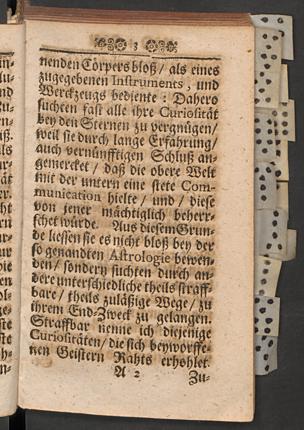 3
nenden Cörpers bloß / als eines
zugegebenen Instruments, und
Werckzeugs bediente: Dahero
suchten fast alle ihre Curiosität
bey den Sternen zu vergnügen/
weil sie durch lange Erfahrung/
auch vernünfftigen Schluß an-
gemercket / daß die obere Welt
mit der untern eine stete Com-
munication hielte / und / diese
von jener mächtiglich beherr-
schet würde. Aus diesem Grun-
de liessen sie es nicht bloß bey der
so genandten Astrologie bewen-
den / sondern suchten durch an-
dere unterschiedliche theils straff-
bare / theils zuläßige Wege / zu
ihrem End-Zweck zu gelangen.
Straffbar nenne ich diejenige
Curiositäten / die sich beyworffe-
nen Geistern Rahts erhohlet.
A 2 Zu-